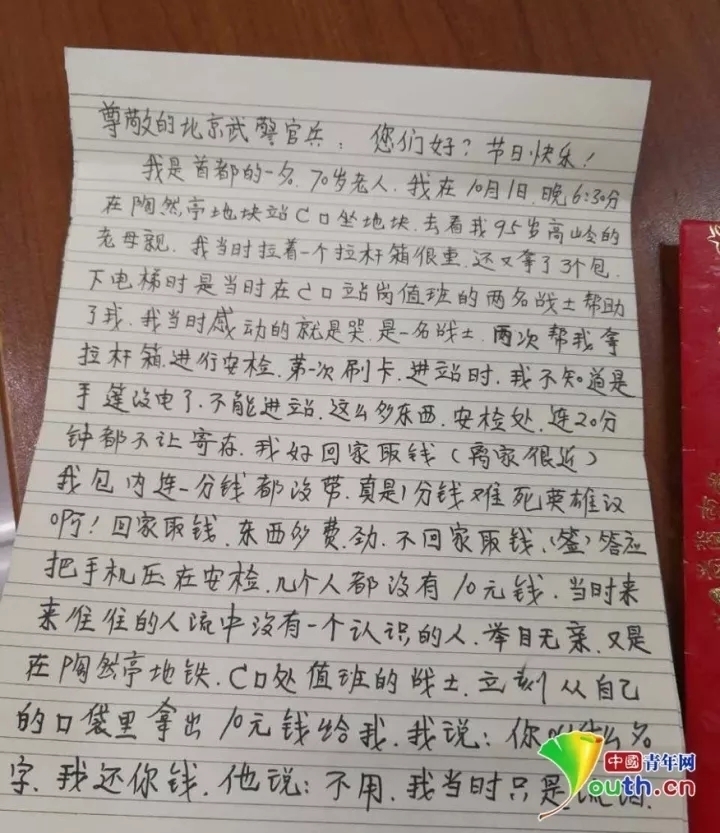 尊敬的北京武警官兵：您们好？节日快乐！
我是首都的一名.70岁老人.我在10月1日.晚6:30分
在陶然亭地块站C口坐地块.去看我95岁高岭的
老母親.我当时拉着一个拉杆箱很重.还又拿了3个包.
下电梯时是当时在C口站岗值班的两名战士帮助
了我.我当时感动的就是哭.是一名战士.两次帮我拿
拉杆箱.进行安检.第一次刷卡.进站时.我不知道是
手莲没电了.不能进站.这么多东西.安检处.连20分
钟都不让寄存.我好回家取钱（离家很近）
我包内连一分钱都没带.真是1分钱难死英雄议
啊！回家取钱.东西多费.劲.不回家取钱.(签)答应
把手机压在安检.几个人都没有10元钱.当时来
来住住的人流中没有一个认识的人.举目无亲.又是
在陶然亭地铁.C口处值班的战士.立刻从自己
的口袋里拿出10元钱给我.我说：你叫什么名
字.我还你钱.他说：不用.我当时只是
中國青年网
Youth.cn